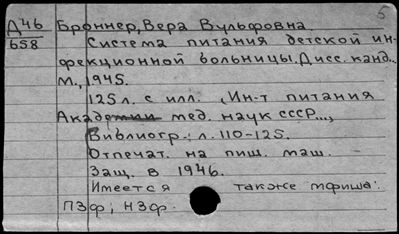 5
Д46 Броннер, Вера Вульфовна.
658 Система питания детской ин-
фекционной больницы. Дисс. канд..
М., 1945.
125 л. с илл. (Ин-т питания
Академии мед. наук СССР...,
Библиогр.: л. 110-125.
Отпечат. на пиш. маш.
Защ. в 1946.
Имеется также мфиша:
ПЗФ; НЗФ.